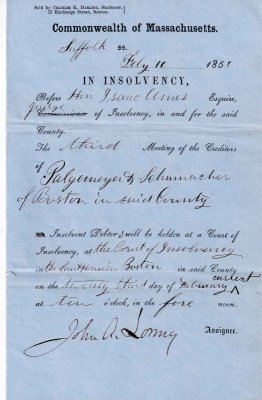 Sold by CHARLES K. DARLING, Stationer,
16 Exchange Street, Boston.
Commonwealth of Massachusetts.
Suffolk ss.
Feby 11 1858
IN INSOLVENCY,
Before Hon Isaac Ames Esquire,
Judge
Commissioner of Insolvency, in and for the said
County.
The third Meeting of the Creditors
of Palgemeyer & Schumacher
of Boston in said County
Insolvent Debtors, will be holden at a Court of
Insolvency, at the Court of Insolvency
in the Court House in Boston in said County
current
on the twenty third day of February
at ten o'clock, in the fore noon.
John A. Loring Assignee.